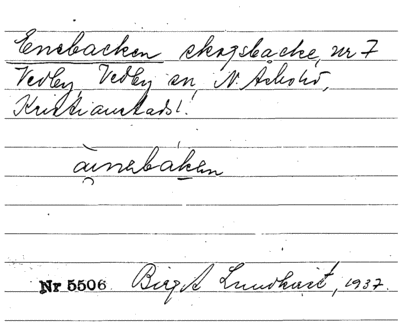 Enebacken skogsbacke, nr 7
Vedby, Vedby sn, N. Åsbo hd,
Kristianstads l.
äinebaken
Nr 5506 Birgit Lundkvist, 1937.